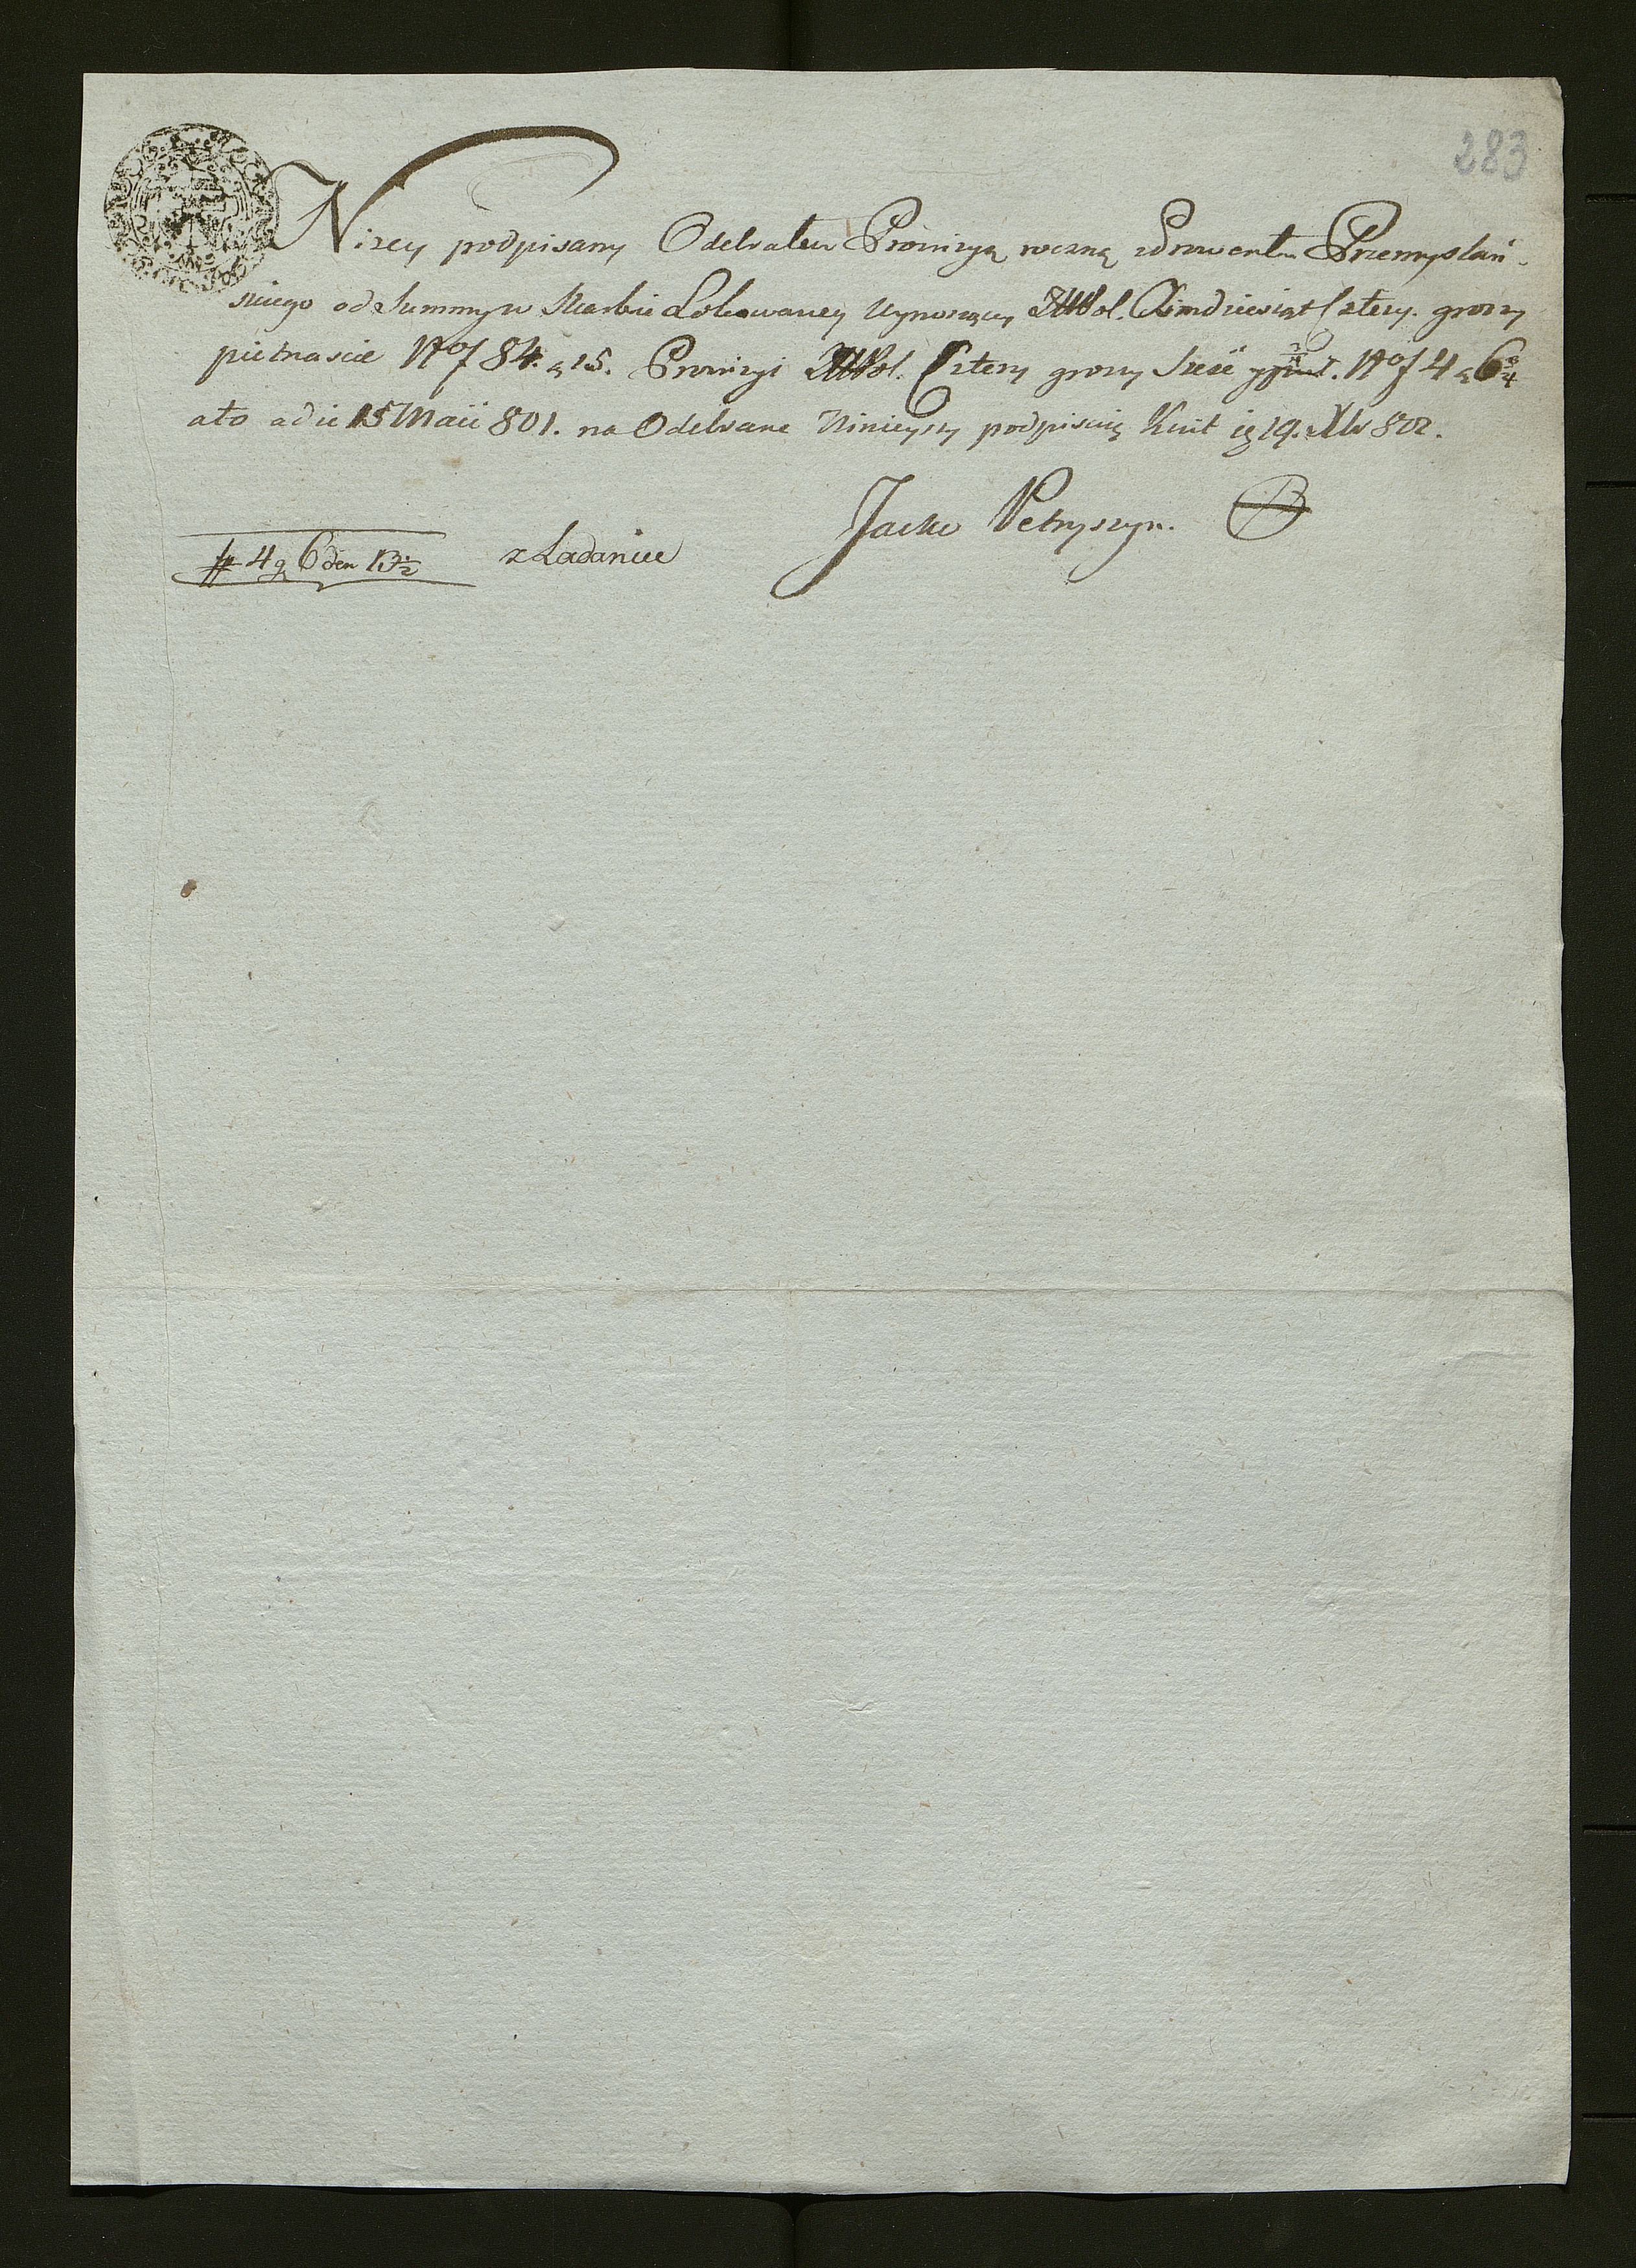 283
Nizey podpisany Odebrałem Prowizyą roczną z Prowentu Przemyślań-
skiego od Summy w Skarbie Lokowaney wynoszącey Złłpol. Osmdziesiąt Cztery. groszy
pietnascie Nof 84. g 15. Prowizyi Złłpol. Cztery groszy szesc Nof 4 g 6 3/4
a to a die 15 Maii 801. na Odebrane Ninieyszy podpisuię Kwit ig 19. Xbr 802.
Jacko Petryszyn.
# 4 g 6 den 13 1/2 z Ładaniec